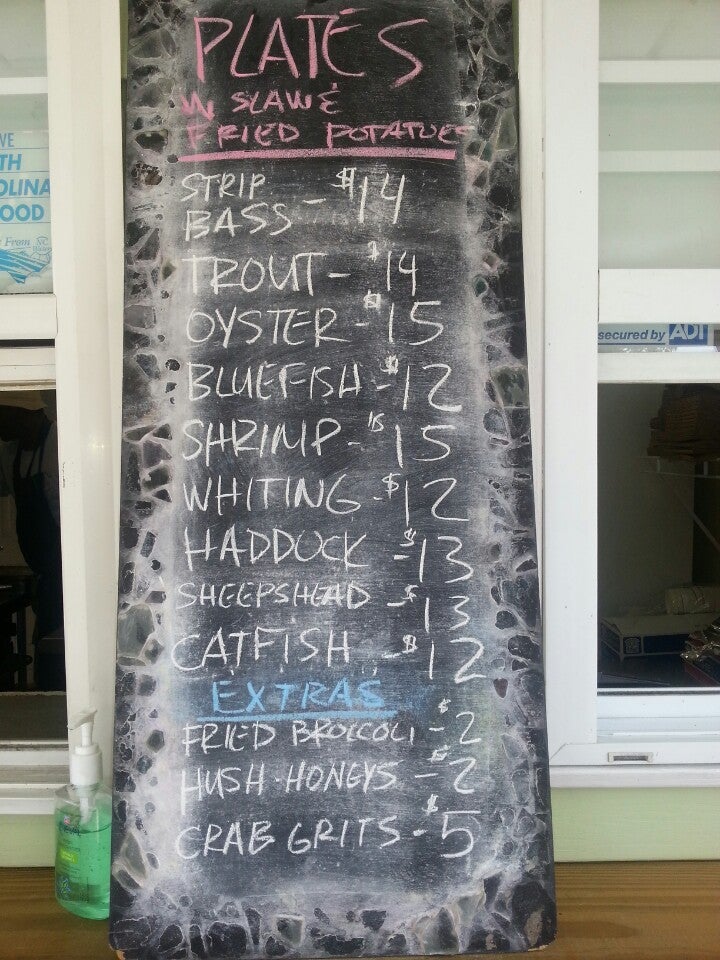 PLATES
W SLAW &
FRIED POTATOES
STRIP
BASS - $14
TROUT - $14
OYSTER - $15
BLUEFISH - $12
SHRIMP - $15
WHITING - $12
HADDOCK - $13
SHEEPSHEAD - $13
CATFISH - $12
EXTRAS
FRIED BROCCOLI - $2
HUSH-HONEYS - $2
CRAB GRITS - $5
TH
OLINA
OOD
From NC
secured by ADT